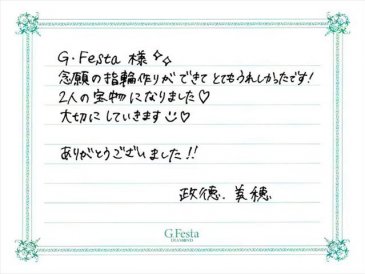 G.Festa 様
念願の指輪作りができて とてもうれしかったです!
2人の宝物になりました♡
大切にしていきます☺♡
ありがとうございました!!
政徳、美穂
G.Festa
DIAMOND